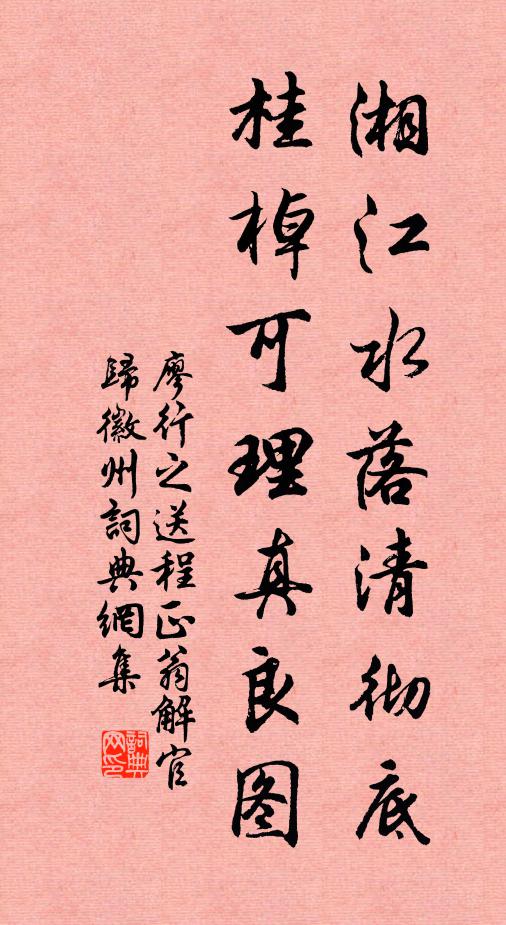 湘江水落清彻底
桂棹可理真良图
廖行之送程正翁解官
歸徽州詞典網集
詞典网印